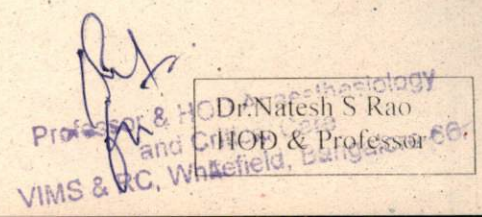 Professor & HOD Anaesthesiology
and Critical Care
VIMS & RC, Whitefield, Bangalore-66.
Dr.Natesh S Rao
HOD & Professor